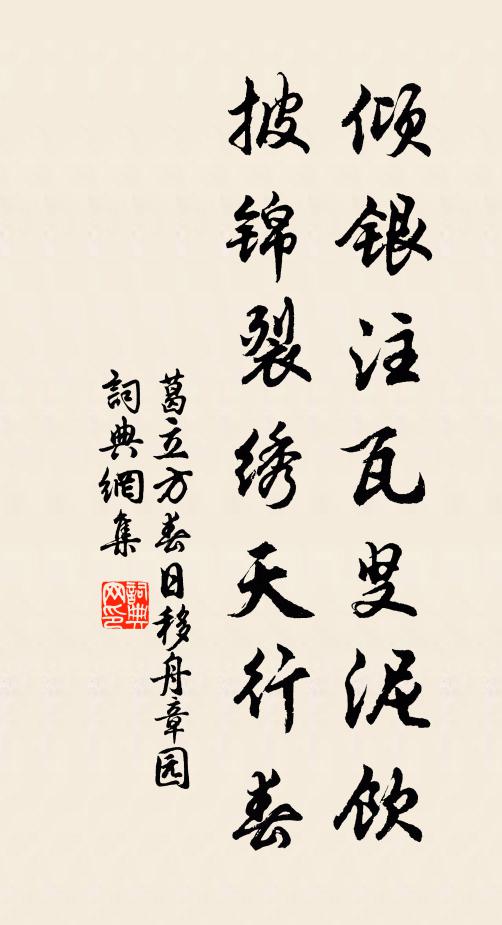 倾银注瓦叟泥饮
披锦裂绣天行春
葛立方春日移舟章园
詞典網集
詞典网印